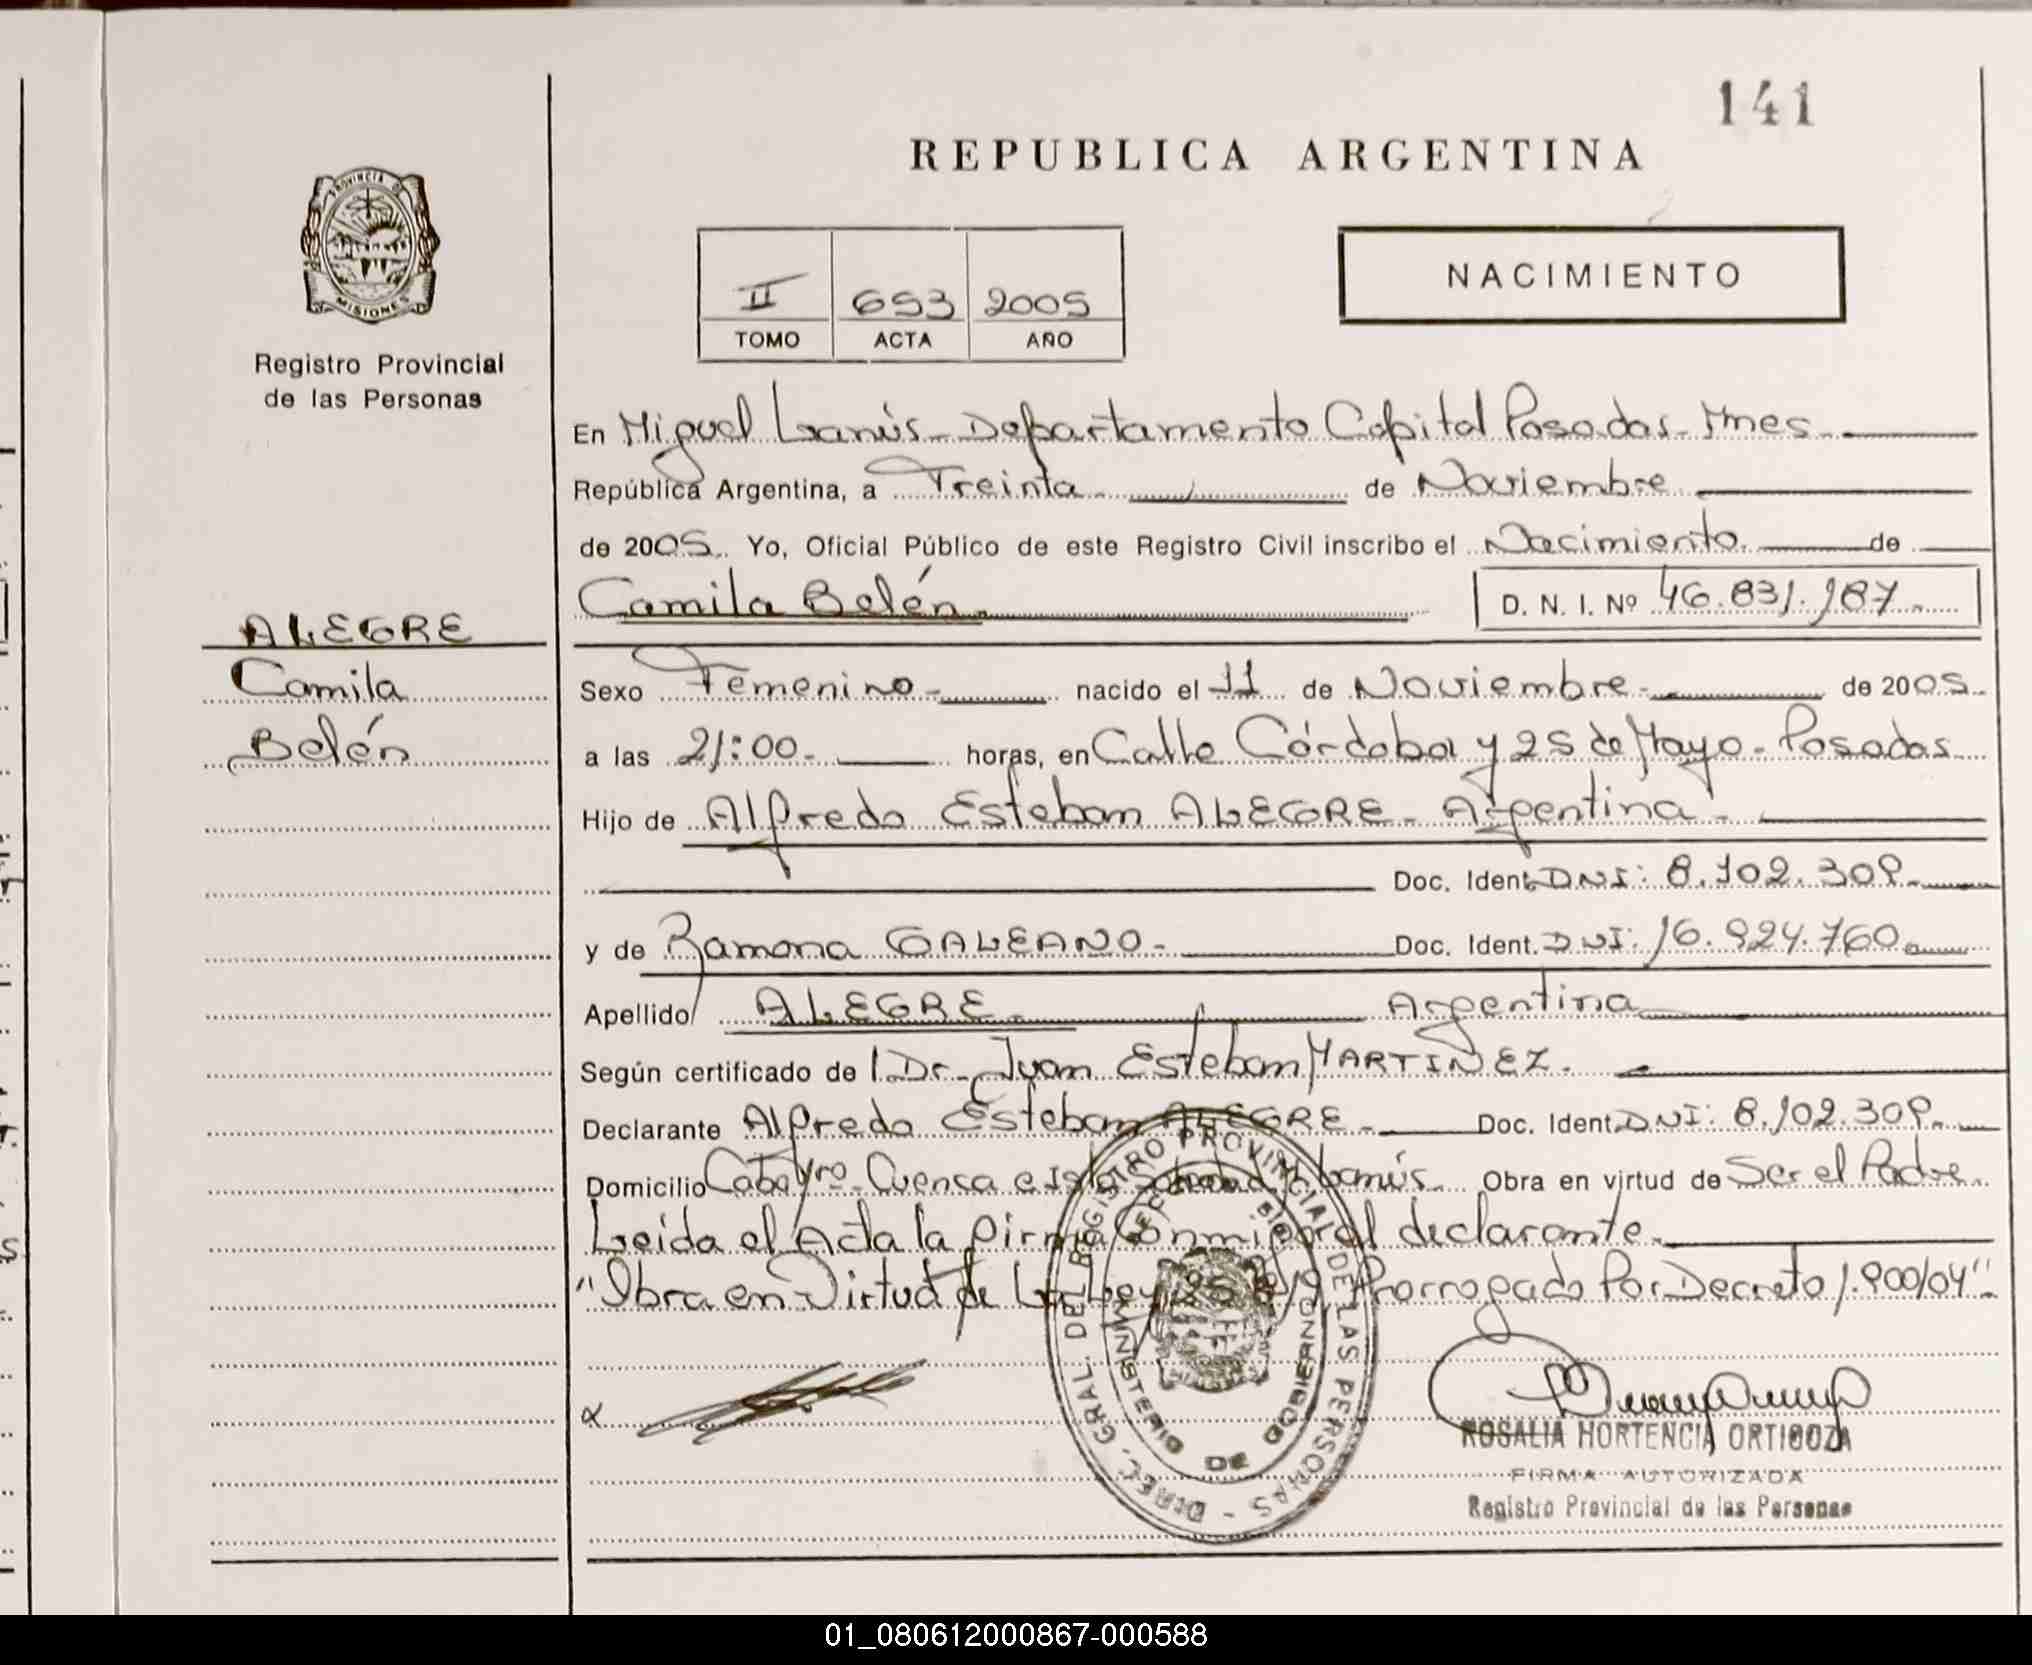 141
REPUBLICA ARGENTINA
PROVINCIA DE
MISIONES
Registro Provincial
de las Personas
II 653 2005
TOMO ACTA AÑO
NACIMIENTO
En Miguel Lanús - Departamento Capital Posadas - Mnes
República Argentina, a Treinta de Noviembre
de 2005. Yo, Oficial Público de este Registro Civil inscribo el Nacimiento de
Camila Belén. D. N. I. Nº 46.831.187.
ALEGRE
Camila
Belén
Sexo Femenino nacido el 11 de Noviembre de 2005
a las 21:00 horas, en Calle Córdoba y 25 de Mayo - Posadas
Hijo de Alfredo Esteban ALEGRE - Argentina
Doc. Ident. DNI: 8.102.309.
y de Ramona GALEANO. Doc. Ident. DNI: 16.924.760
Apellido ALEGRE. Argentina
Según certificado de l Dr. Juan Esteban MARTINEZ.
Declarante Alfredo Esteban ALEGRE. Doc. Ident. DNI: 8.102.309.
Domicilio Cuenca e Lanús. Obra en virtud de Ser el Padre.
Leida el Acta la firma Conmigo el declarante.
"Obra en Virtud de La Ley Prorrogado Por Decreto 1.900/04".
DIREC. GRAL. DE REGISTRO PROVINCIAL DE LAS PERSONAS -
MINISTERIO DE GOBIERNO
ROSALIA HORTENCIA ORTIGOZA
FIRMA AUTORIZADA
Registro Provincial de las Personas
01_080612000867-000588